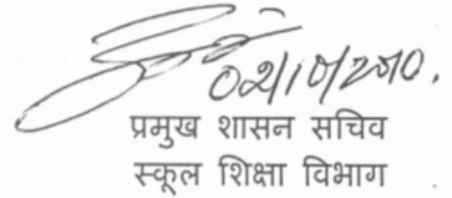 02/10/2010.
प्रमुख शासन सचिव
स्कूल शिक्षा विभाग